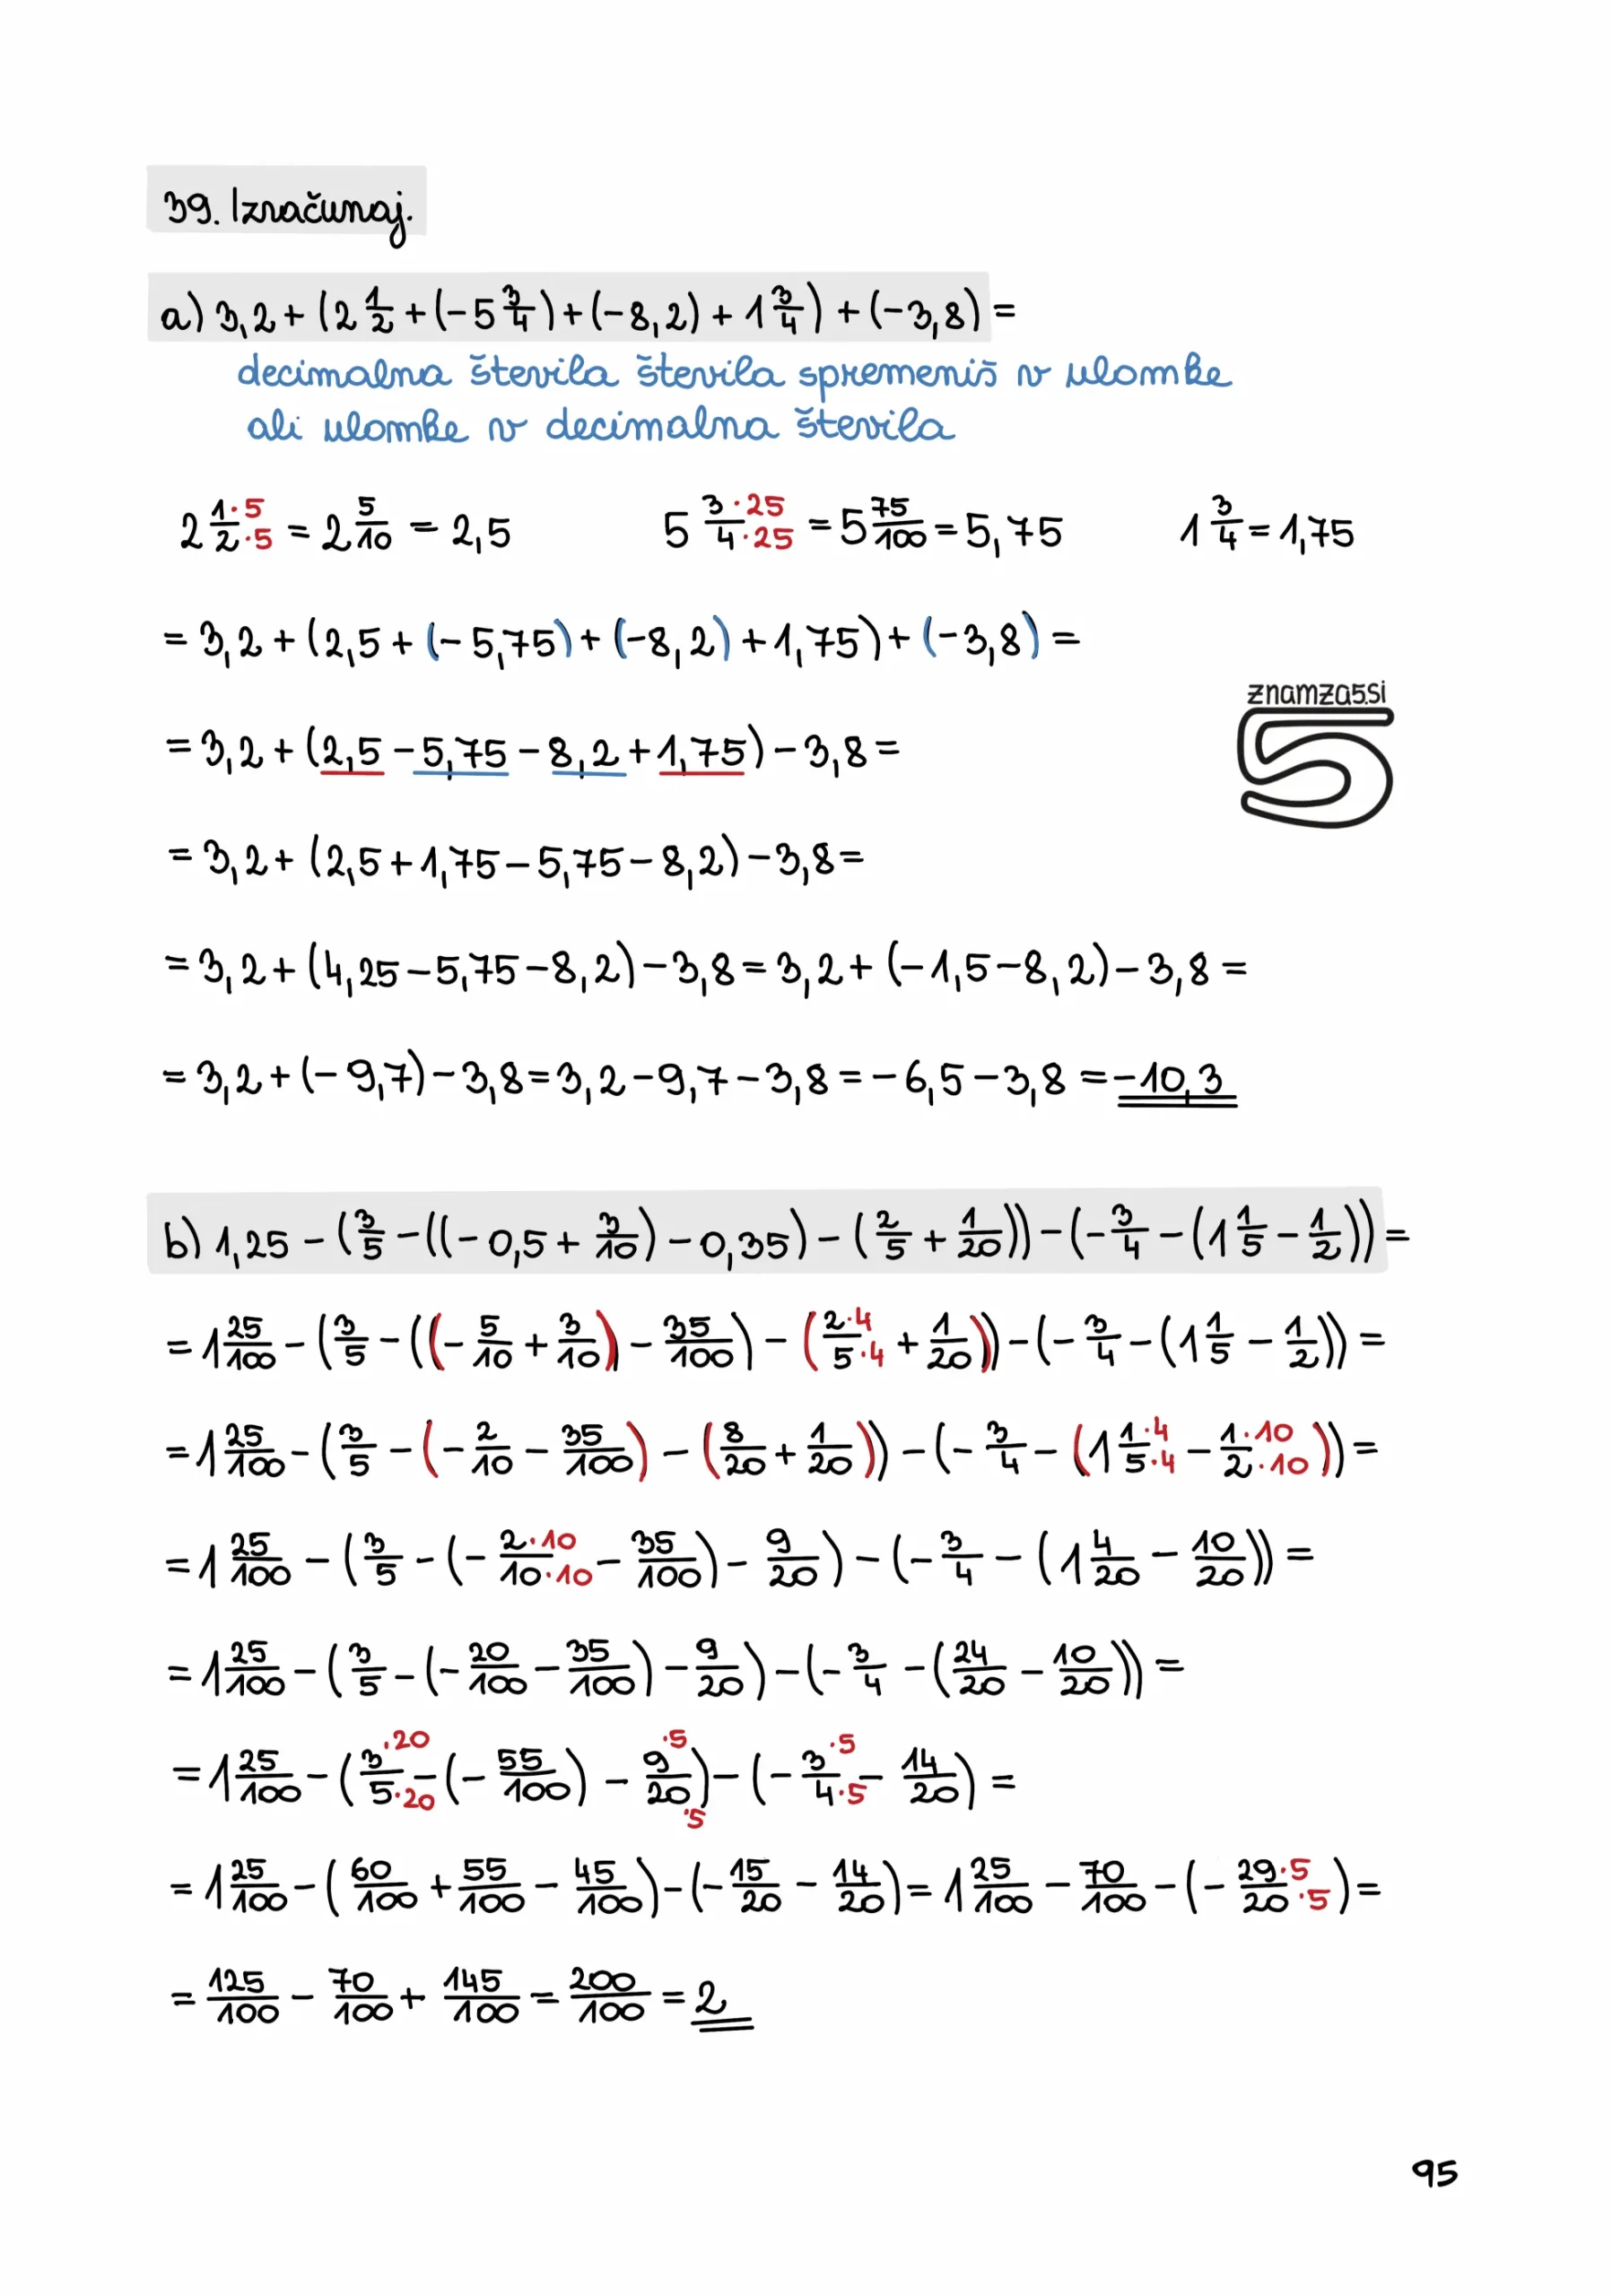 39. Izračunaj.
a) 3,2 + (2 1/2 + (-5 3/4) + (-8,2) + 1 3/4) + (-3,8) =
decimalna števila števila spremeniš v ulomke
ali ulomke v decimalna števila
2 1·5/2·5 = 2 5/10 = 2,5    5 3·25/4·25 = 5 75/100 = 5,75    1 3/4 = 1,75
= 3,2 + (2,5 + (-5,75) + (-8,2) + 1,75) + (-3,8) =
znamza5.si
5
= 3,2 + (2,5 - 5,75 - 8,2 + 1,75) - 3,8 =
= 3,2 + (2,5 + 1,75 - 5,75 - 8,2) - 3,8 =
= 3,2 + (4,25 - 5,75 - 8,2) - 3,8 = 3,2 + (-1,5 - 8,2) - 3,8 =
= 3,2 + (-9,7) - 3,8 = 3,2 - 9,7 - 3,8 = -6,5 - 3,8 = -10,3
b) 1,25 - (3/5 - ((-0,5 + 3/10) - 0,35) - (2/5 + 1/20)) - (-3/4 - (1 1/5 - 1/2)) =
= 1 25/100 - (3/5 - ((-5/10 + 3/10) - 35/100) - (2·4/5·4 + 1/20)) - (-3/4 - (1 1/5 - 1/2)) =
= 1 25/100 - (3/5 - (-2/10 - 35/100) - (8/20 + 1/20)) - (-3/4 - (1 1·4/5·4 - 1·10/2·10)) =
= 1 25/100 - (3/5 - (-2·10/10·10 - 35/100) - 9/20) - (-3/4 - (1 4/20 - 10/20)) =
= 1 25/100 - (3/5 - (-20/100 - 35/100) - 9/20) - (-3/4 - (24/20 - 10/20)) =
= 1 25/100 - (3·20/5·20 - (-55/100) - 9·5/20·5) - (-3·5/4·5 - 14/20) =
= 1 25/100 - (60/100 + 55/100 - 45/100) - (-15/20 - 14/20) = 1 25/100 - 70/100 - (-29·5/20·5) =
= 125/100 - 70/100 + 145/100 = 200/100 = 2
95